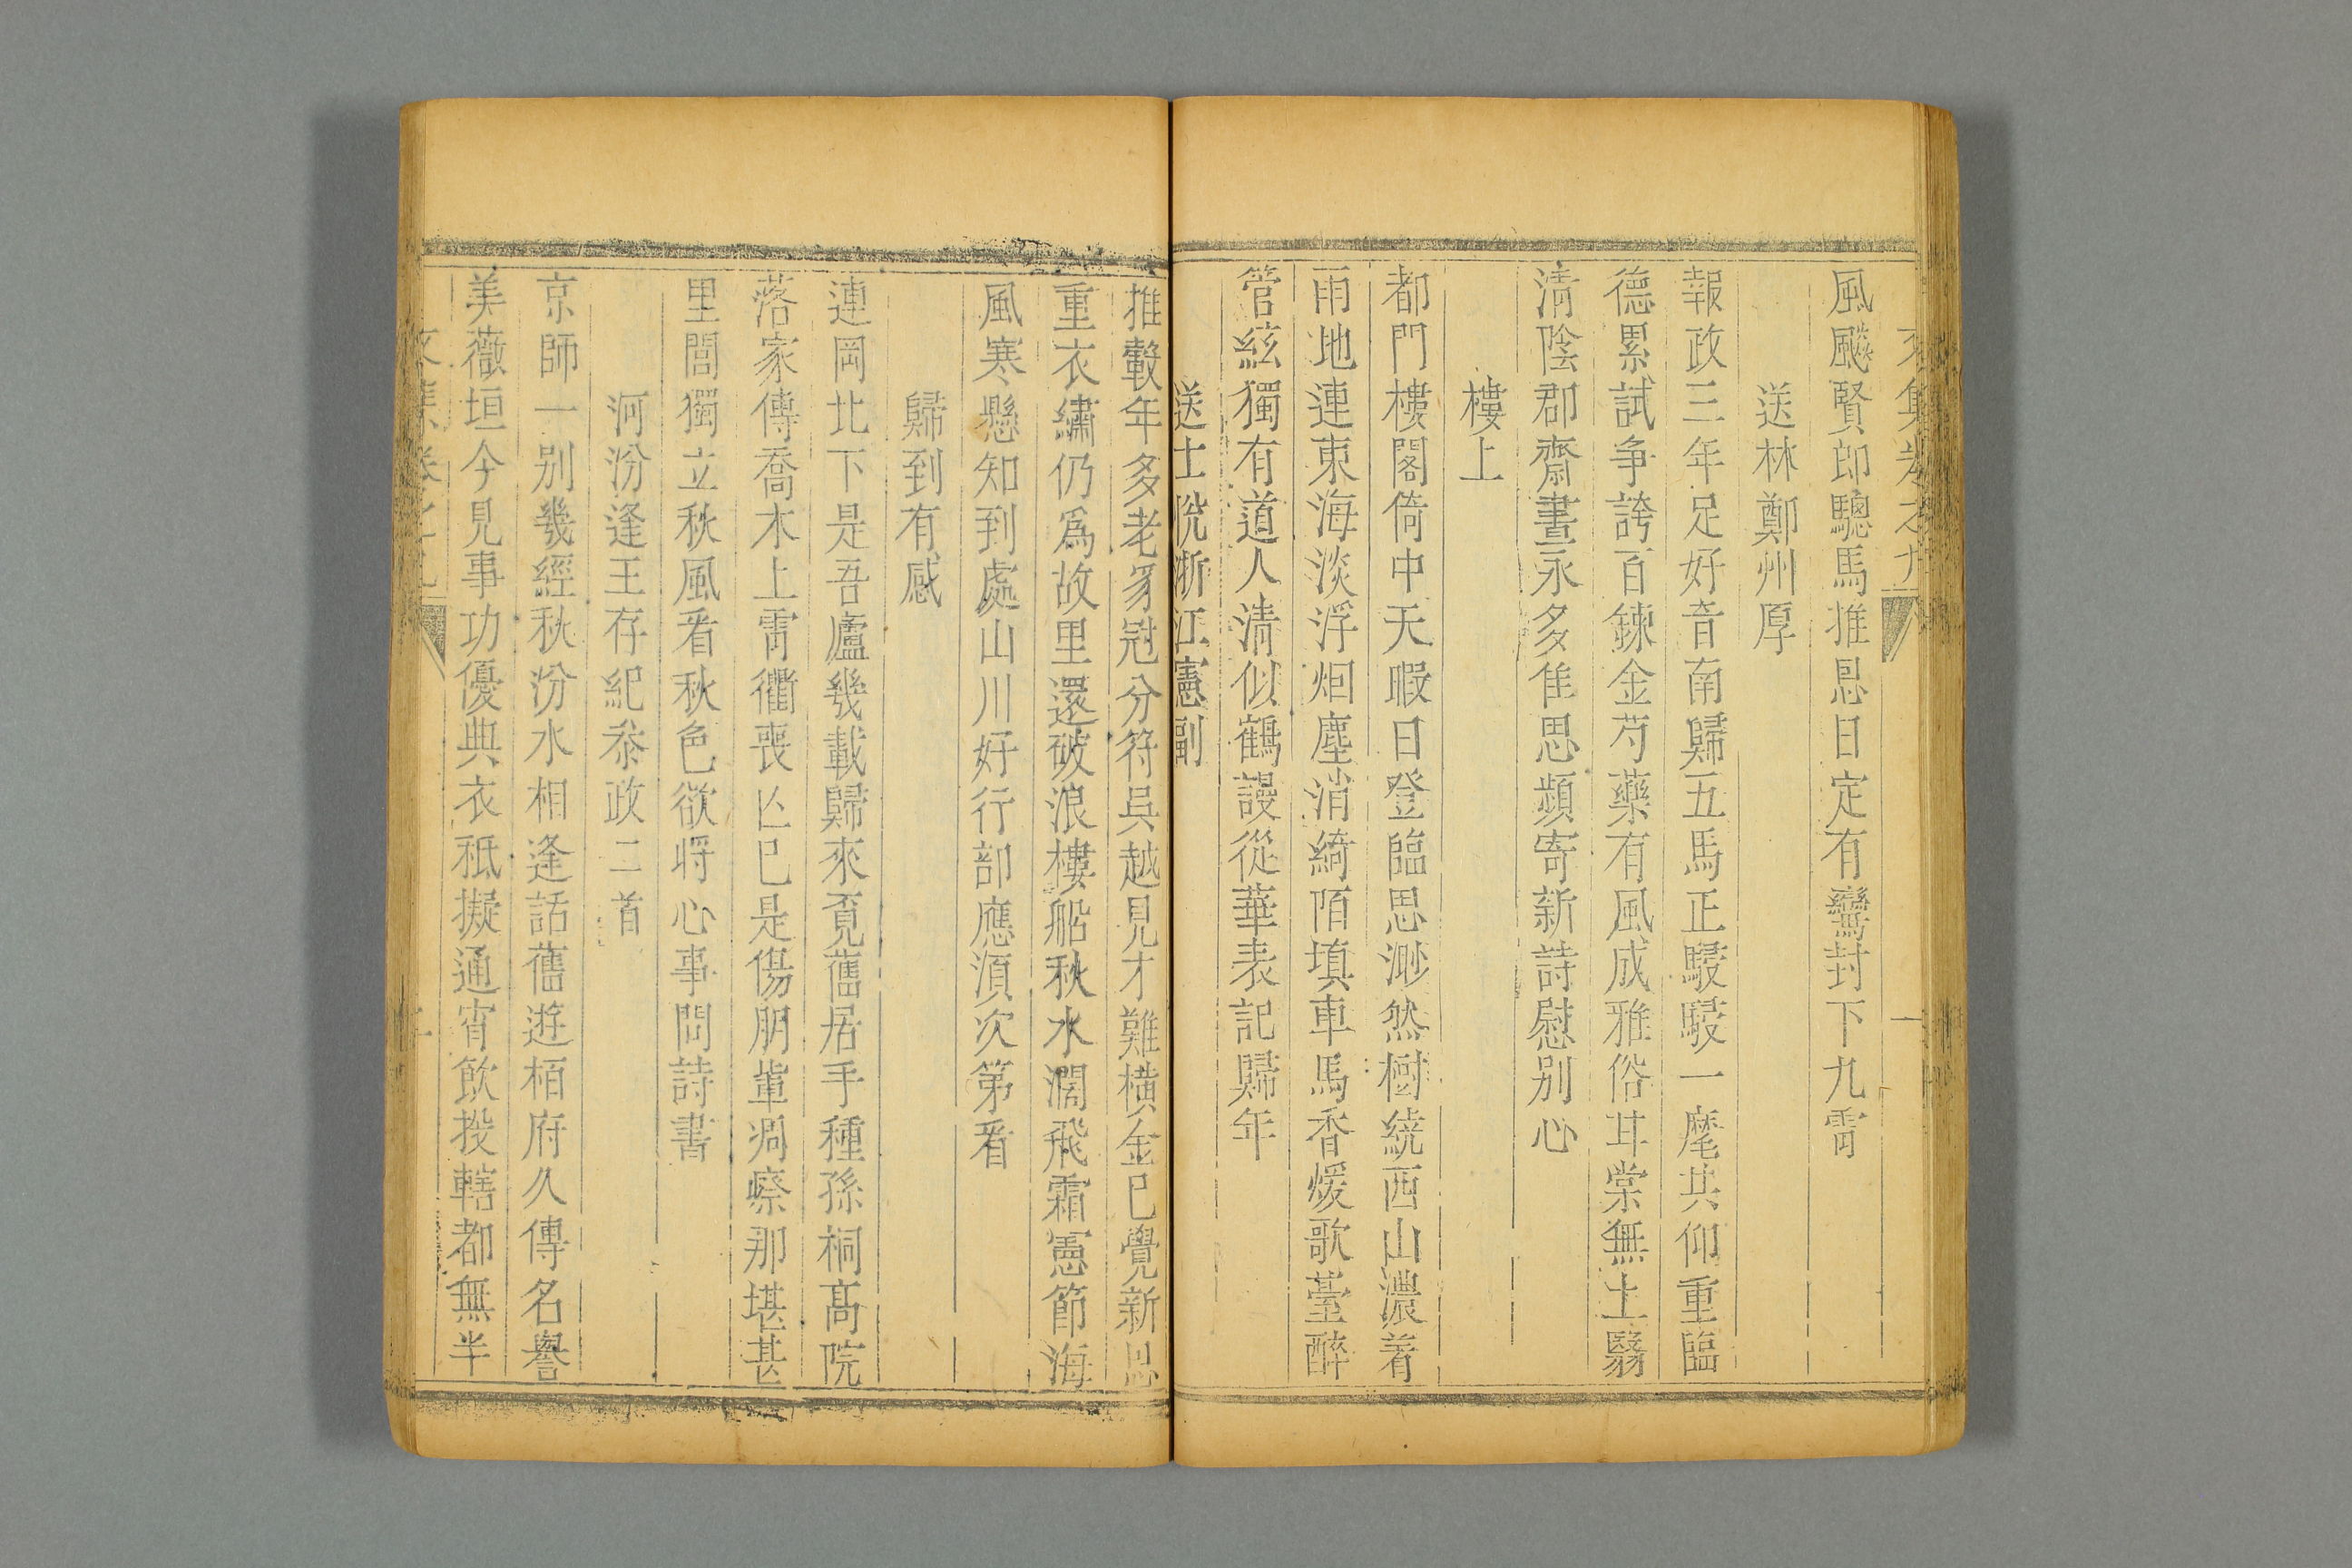 文集卷之九
一
風飈賢郎驄馬推恩日定有鸞封下九霄
送林鄭州厚
報政三年足好音南歸五馬正駸駸一麾共仰重臨
德累試争誇百鍊金芍藥有風成雅俗甘棠無土翳
清陰郡齋晝永多隹思頻寄新詩慰别心
樓上
都門樓閣倚中天暇日登臨思渺然樹繞西山濃着
雨地連東海淡浮烟塵消綺陌填車馬香煖歌臺醉
管絃獨有道人清似鶴謾從華表記歸年
送士悅浙江憲副
推轂年多老豸冠分符吳越見才難橫金已覺新恩
重衣繡仍爲故里還破浪樓船秋水濶飛霜憲節海
風寒懸知到處山川好行部應湏次第看
歸到有感
連岡北下是吾廬幾載歸來覓舊居手種孫桐髙院
落家傳喬木上霄衢喪亾已是傷朋軰凋瘵那堪甚
里閭獨立秋風看秋色欲將心事問詩書
河汾逢王存紀叅政二首
京師一别幾經秋汾水相逢話舊遊栢府久傳名譽
美薇垣今見事功優典衣祗擬通宵飲投轄都無半
文集卷之九